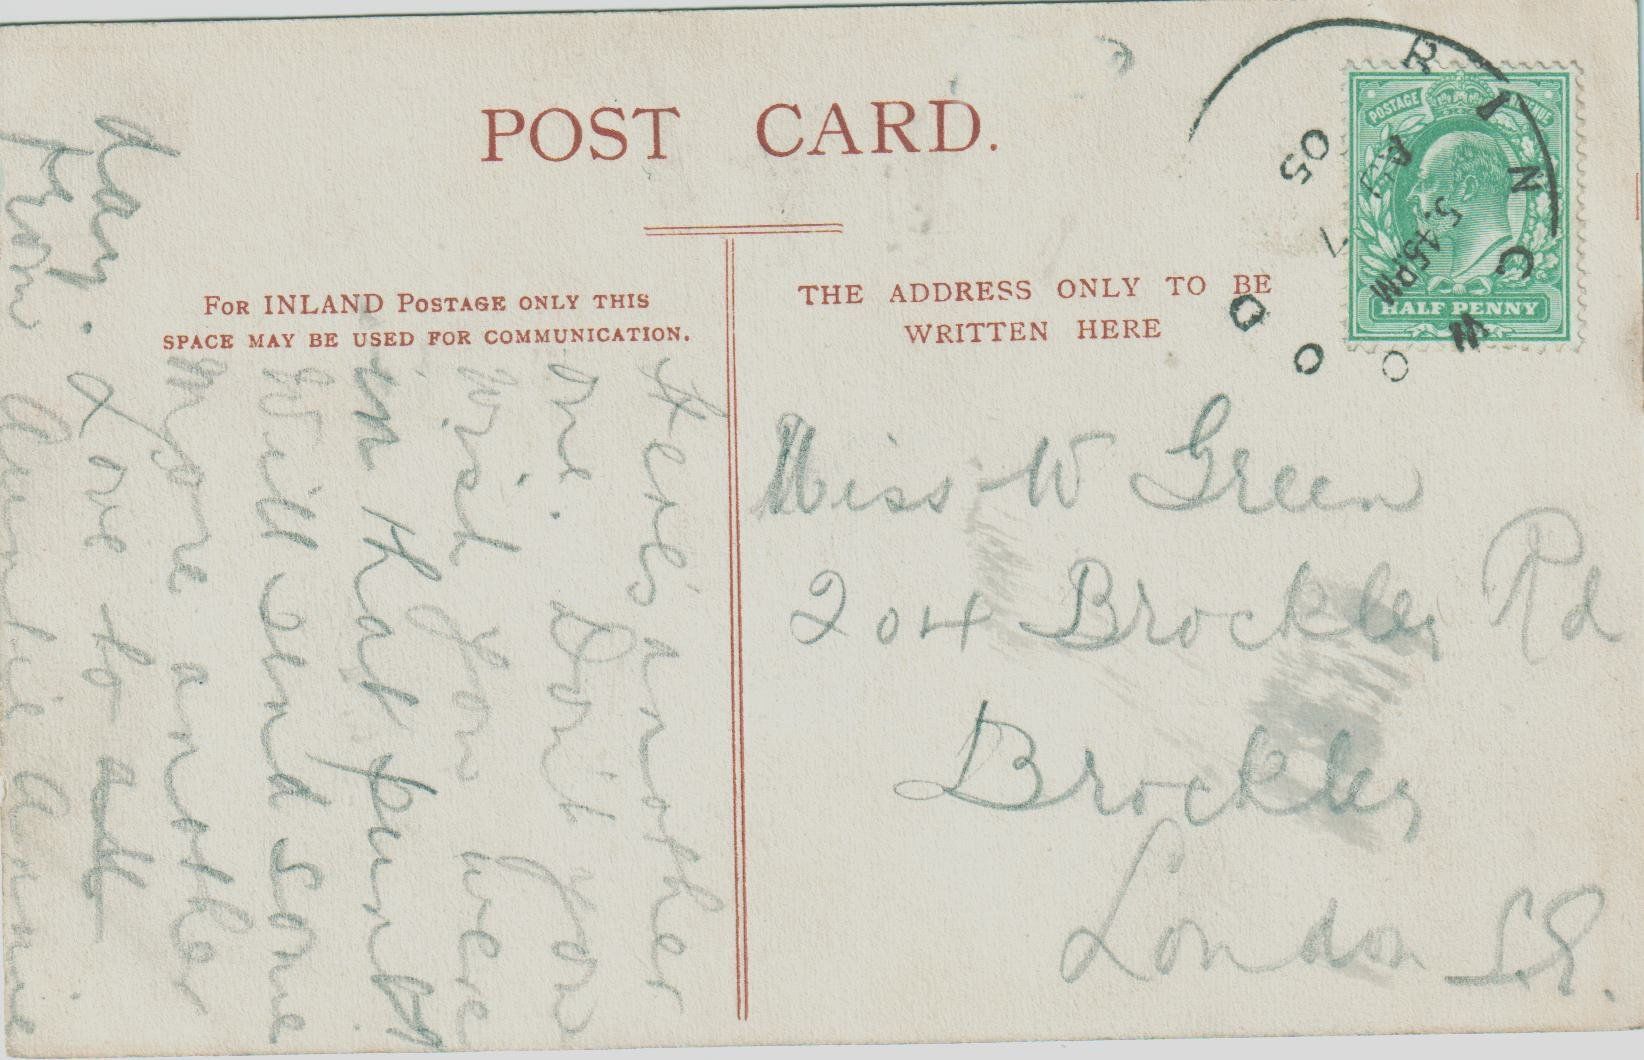 POST CARD.
FOR INLAND POSTAGE ONLY THIS
SPACE MAY BE USED FOR COMMUNICATION.
THE ADDRESS ONLY TO BE
WRITTEN HERE
POSTAGE
HALF PENNY
RINGWOOD
5.45PM
7
05
Miss W Green
204 Brockley Rd
Brockley
London S.E.
Here's another
one. Don't you
wish you were
in that punt
Will send some
more another
day. Love to all
From Auntie Annie